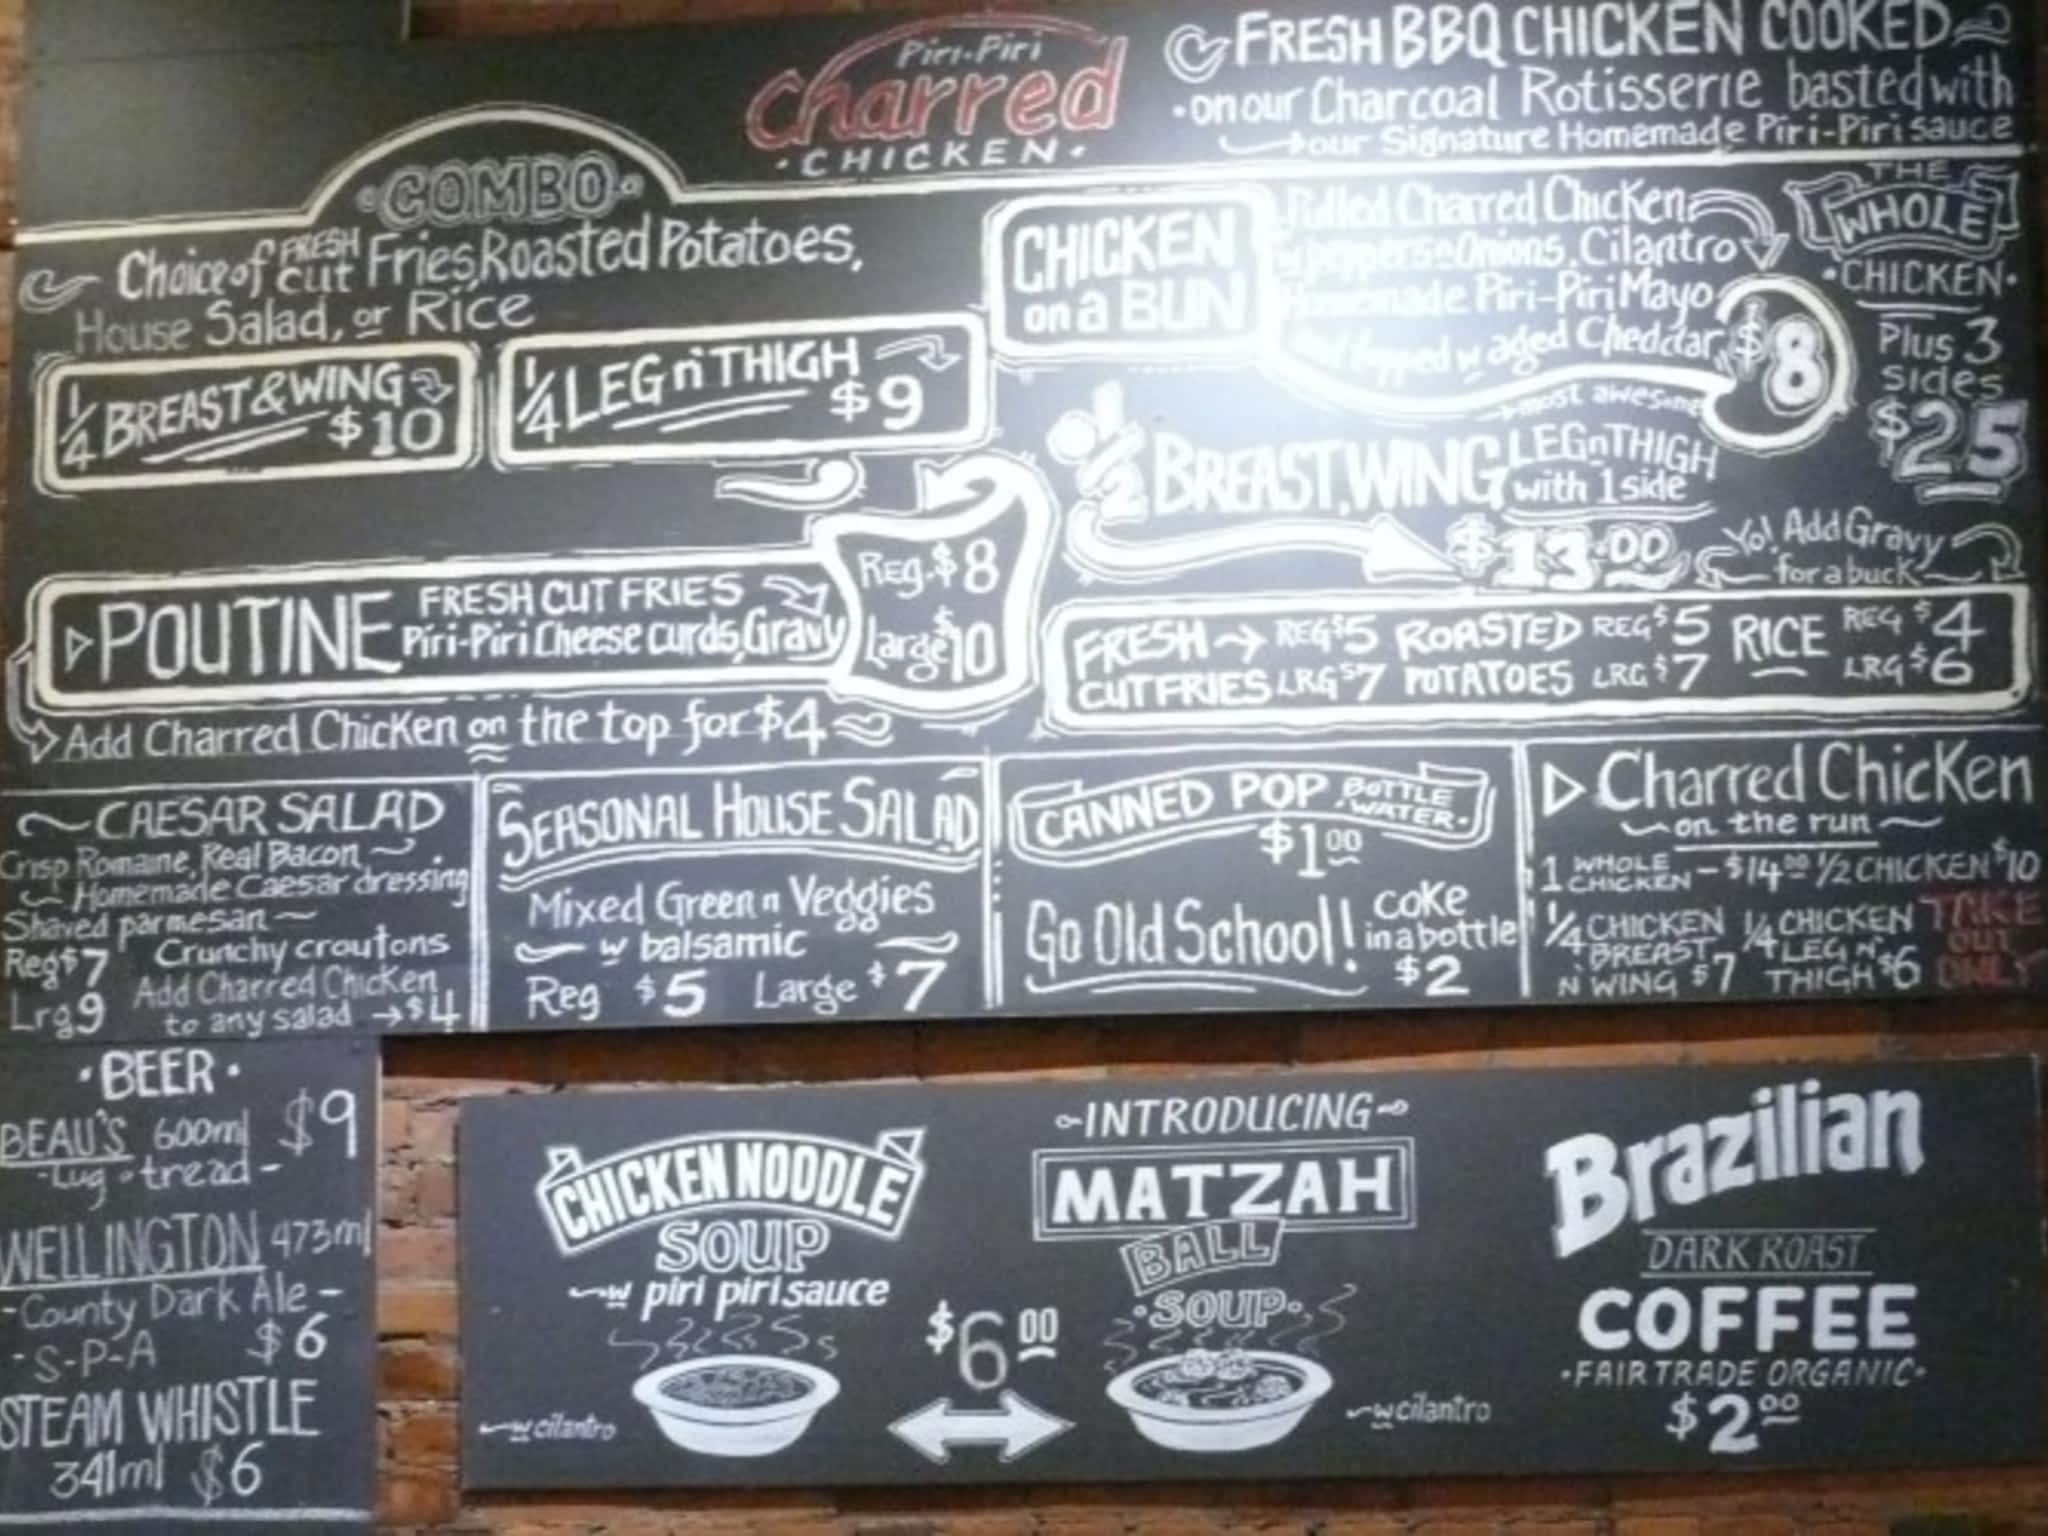 Piri-Piri
Charred
·CHICKEN·
FRESH BBQ CHICKEN COOKED
·on our Charcoal Rotisserie basted with
our Signature Homemade Piri-Piri sauce
·COMBO·
Choice of FRESH cut Fries, Roasted Potatoes,
House Salad, or Rice
1/4 BREAST & WING
$10
1/4 LEG n' THIGH
$9
CHICKEN
on a BUN
Pulled Charred Chicken
w peppers n Onions, Cilantro
Homemade Piri-Piri Mayo
topped w aged Cheddar
$8
most awesome
THE
WHOLE
·CHICKEN·
Plus 3
sides
$25
1/2 BREAST, WING LEG n THIGH
with 1 side
$13.00
Yo! Add Gravy
for a buck
POUTINE
FRESH CUT FRIES
Piri-Piri Cheese curds, Gravy
Reg. $8
Large $10
Add Charred Chicken on the top for $4
FRESH CUT FRIES REG $5 LRG $7
ROASTED POTATOES REG $5 LRG $7
RICE REG $4 LRG $6
CAESAR SALAD
Crisp Romaine, Real Bacon
Homemade Caesar dressing
Shaved parmesan
Reg $7 Crunchy croutons
Lrg 9 Add Charred Chicken
to any salad $4
SEASONAL HOUSE SALAD
Mixed Green n Veggies
w balsamic
Reg $5 Large $7
CANNED POP BOTTLE WATER·
$1.00
Go Old School! coke
in a bottle
$2
Charred Chicken
on the run
1 WHOLE CHICKEN - $14.00 1/2 CHICKEN $10
1/4 CHICKEN BREAST N' WING $7
1/4 CHICKEN LEG N' THIGH $6
TAKE
OUT
ONLY
·BEER·
BEAU'S 600ml $9
-Lug·tread-
WELLINGTON 473ml
-County Dark Ale-
·S-P-A $6
STEAM WHISTLE
341ml $6
CHICKEN NOODLE
SOUP
w piri piri sauce
w cilantro
$6.00
INTRODUCING
MATZAH
BALL
·SOUP·
w cilantro
Brazilian
DARK ROAST
COFFEE
·FAIR TRADE ORGANIC·
$2.00